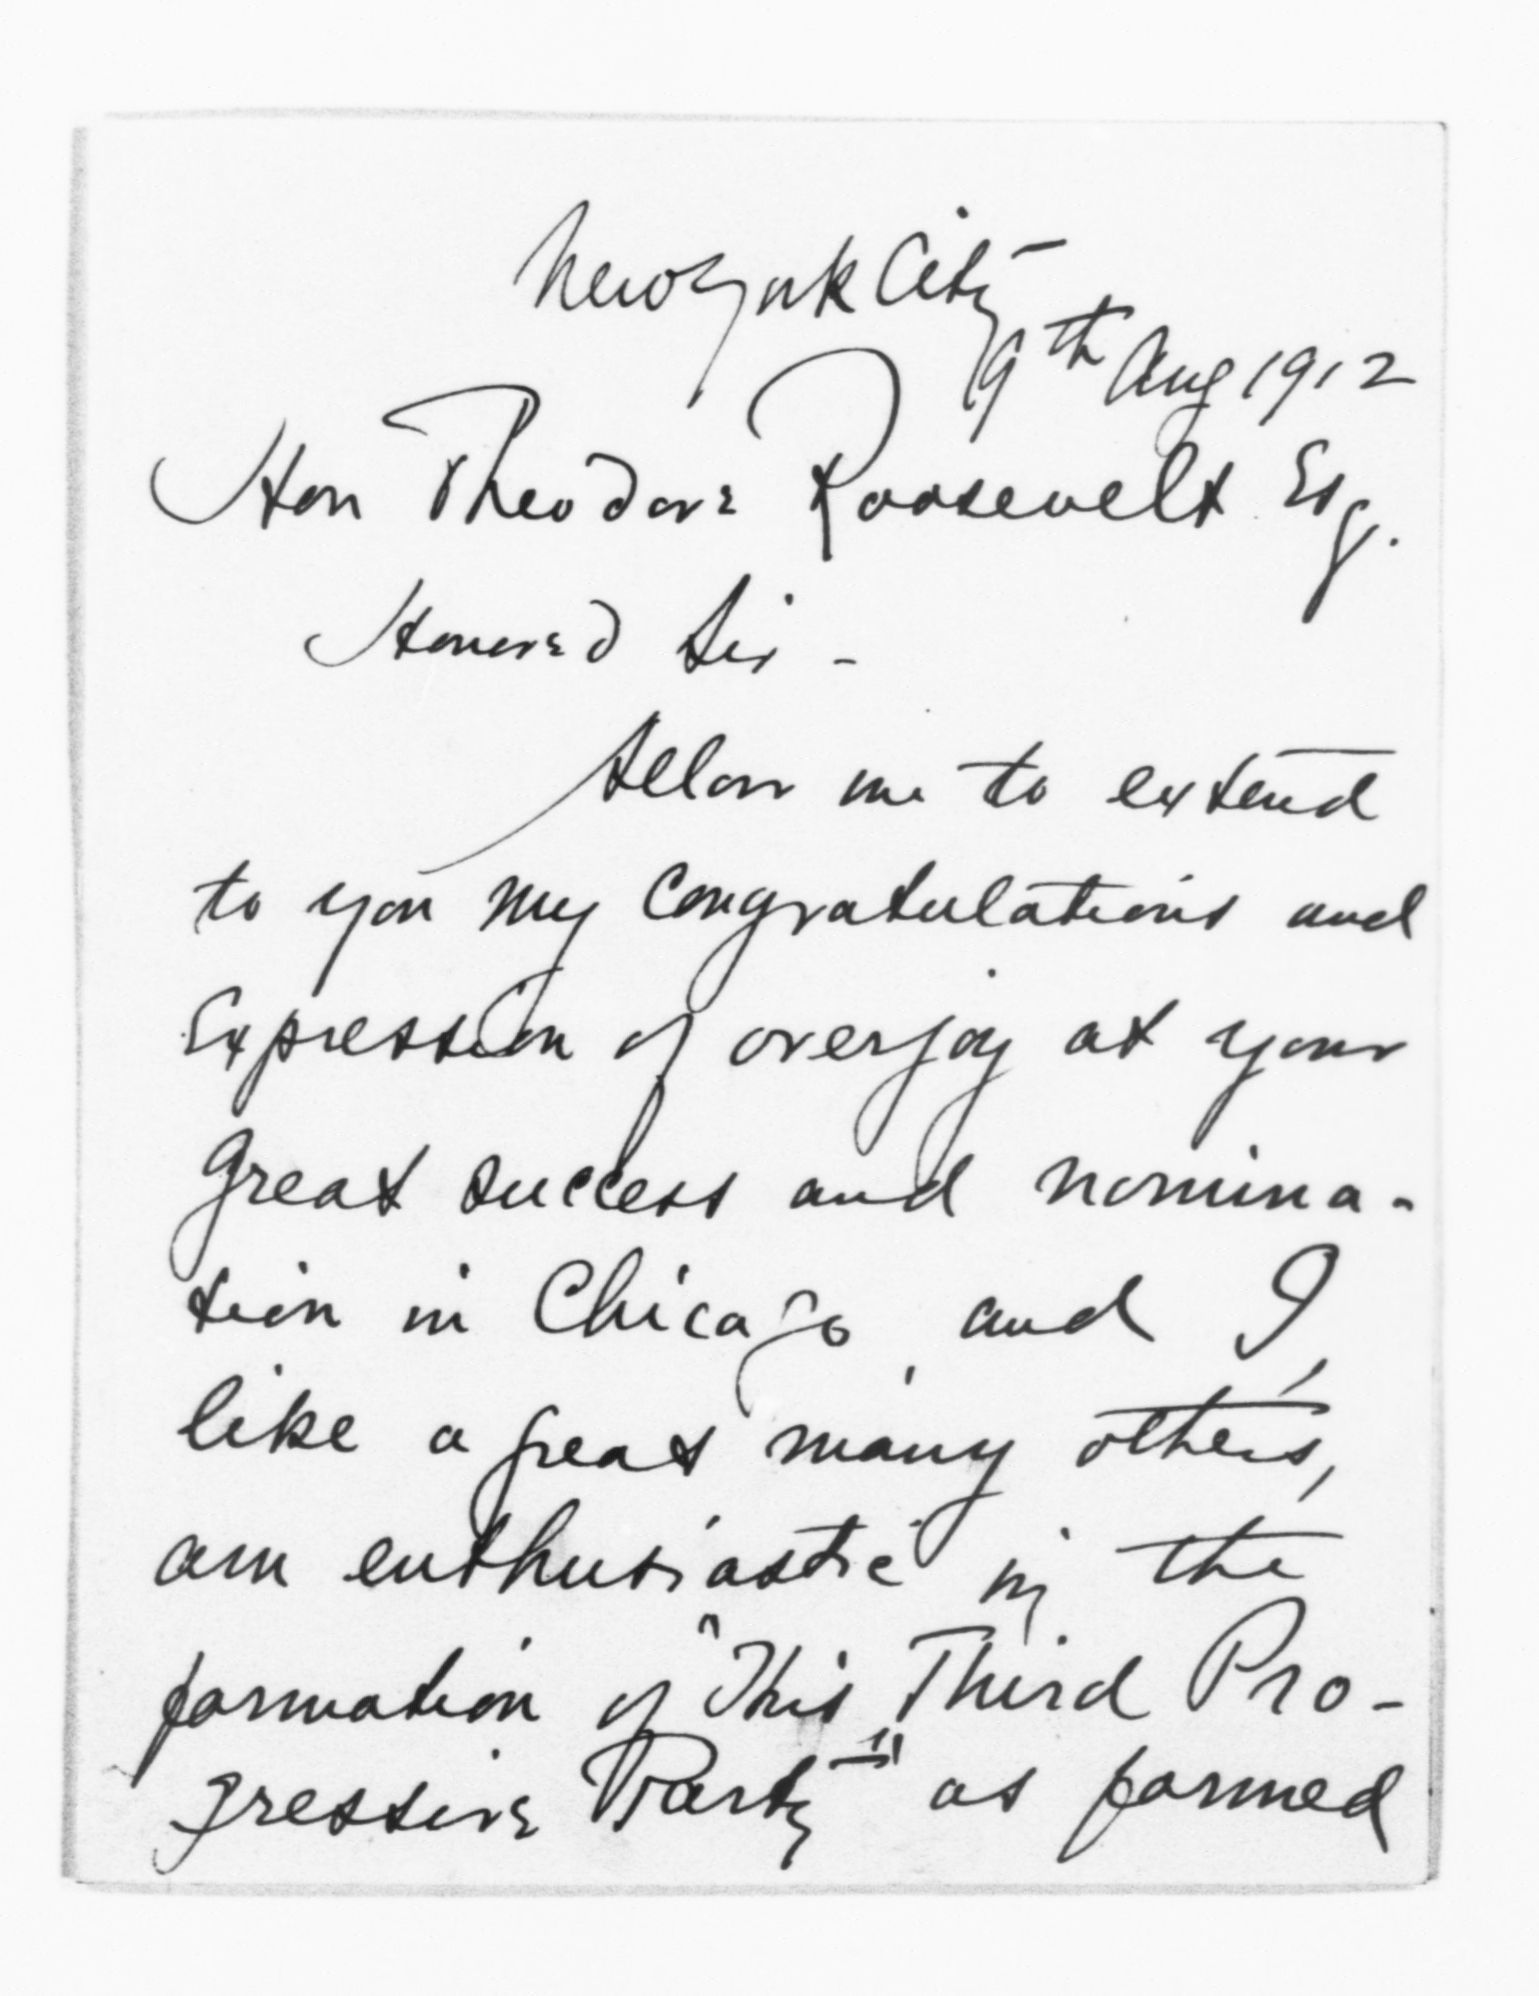 New York City
9th Aug 1912
Hon Theodore Roosevelt Esq.
Honored Sir -
Allow me to extend
to you my Congratulations and
Expression of overjoy at your
great success and nomina-
tion in Chicago, and I,
like a great many others,
am enthusiastic in the
formation of "This Third Pro-
gressive Party" as formed